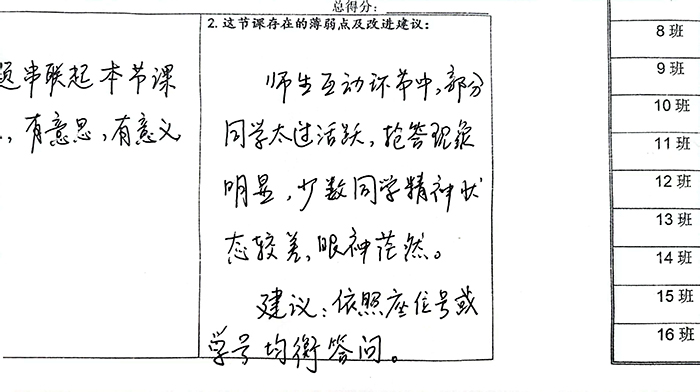 总得分：
2. 这节课存在的薄弱点及改进建议：
串联起本节课
，有意思，有意义
师生互动环节中，部分
同学太过活跃，抢答现象
明显，少数同学精神状
态较差，眼神茫然。
建议：依照座位号或
学号均衡答问。
8班
9班
10班
11班
12班
13班
14班
15班
16班